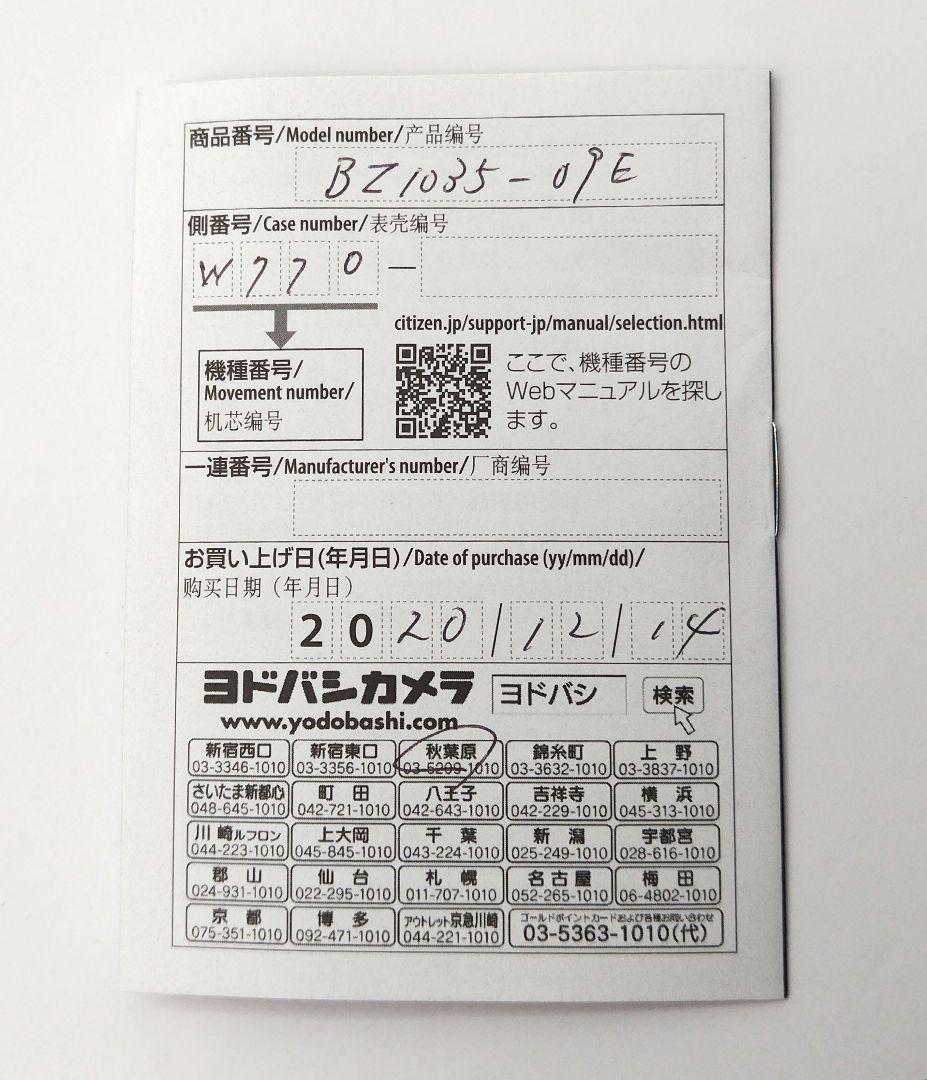 商品番号/Model number/产品编号
BZ1035-09E
側番号/Case number/表壳编号
W770 —
citizen.jp/support-jp/manual/selection.html
機種番号/
Movement number/
机芯编号
ここで、機種番号の
Webマニュアルを探し
ます。
一連番号/Manufacturer's number/厂商编号
お買い上げ日(年月日)/Date of purchase (yy/mm/dd)/
购买日期（年月日）
20 20/12/14
ヨドバシカメラ ヨドバシ 検索
www.yodobashi.com
新宿西口 新宿東口 秋葉原 錦糸町 上野
03-3346-1010 03-3356-1010 03-5209-1010 03-3632-1010 03-3837-1010
さいたま新都心 町田 八王子 吉祥寺 横浜
048-645-1010 042-721-1010 042-643-1010 042-229-1010 045-313-1010
川崎ルフロン 上大岡 千葉 新潟 宇都宮
044-223-1010 045-845-1010 043-224-1010 025-249-1010 028-616-1010
郡山 仙台 札幌 名古屋 梅田
024-931-1010 022-295-1010 011-707-1010 052-265-1010 06-4802-1010
京都 博多 アウトレット京急川崎 ゴールドポイントカードおよび各種お問い合わせ
075-351-1010 092-471-1010 044-221-1010 03-5363-1010(代)